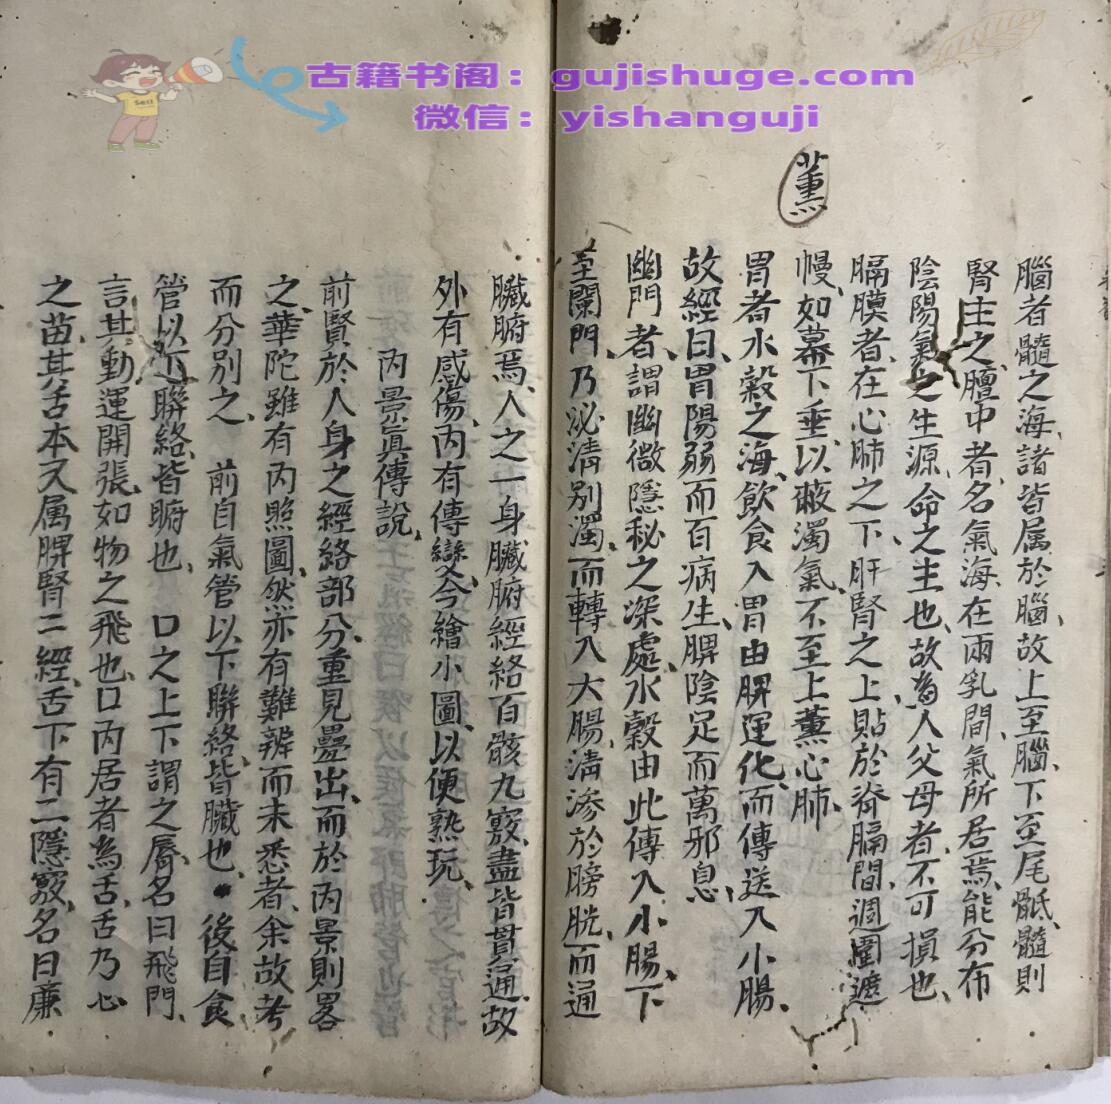 古籍书阁：gujishuge.com
微信：yishanguji
薰
腦者髓之海、諸皆属於腦、故上至腦、下至尾骶、髓則
腎主之、膻中者、名氣海、在兩乳間、氣所居焉、能分布
陰陽氣之生源、命之主也、故為人父母者、不可損也、
膈膜者、在心肺之下、肝腎之上、貼於脊膈間、週圍遮
幔、如幕下垂、以蔽濁氣、不至上薰心肺、
胃者水穀之海、飲食入胃由脾運化、而傳送入小腸、
故經曰、胃陽弱而百病生、脾陰足而萬邪息、
幽門者、謂幽微隱秘之深處、水穀由此傳入小腸、下
至闌門、乃泌清別濁、而轉入大腸、清滲於膀胱、而通
臟腑焉、人之一身臟腑經絡百骸九竅、盡皆貫通、故
外有感傷、內有傳變、今繪小圖、以便熟玩、
內景真傳說、
前賢於人身之經絡部分、重見疊出、而於內景則畧
之、華陀雖有內照圖、然亦有難辨而未悉者、余故考
而分別之、 前自氣管以下聯絡、皆臟也、 後自食
管以下聯絡、皆腑也、 口之上下謂之唇、名曰飛門、
言其動運開張、如物之飛也、口內居者為舌、舌乃心
之苗、其舌本又属脾腎二經、舌下有二隱竅、名曰廉